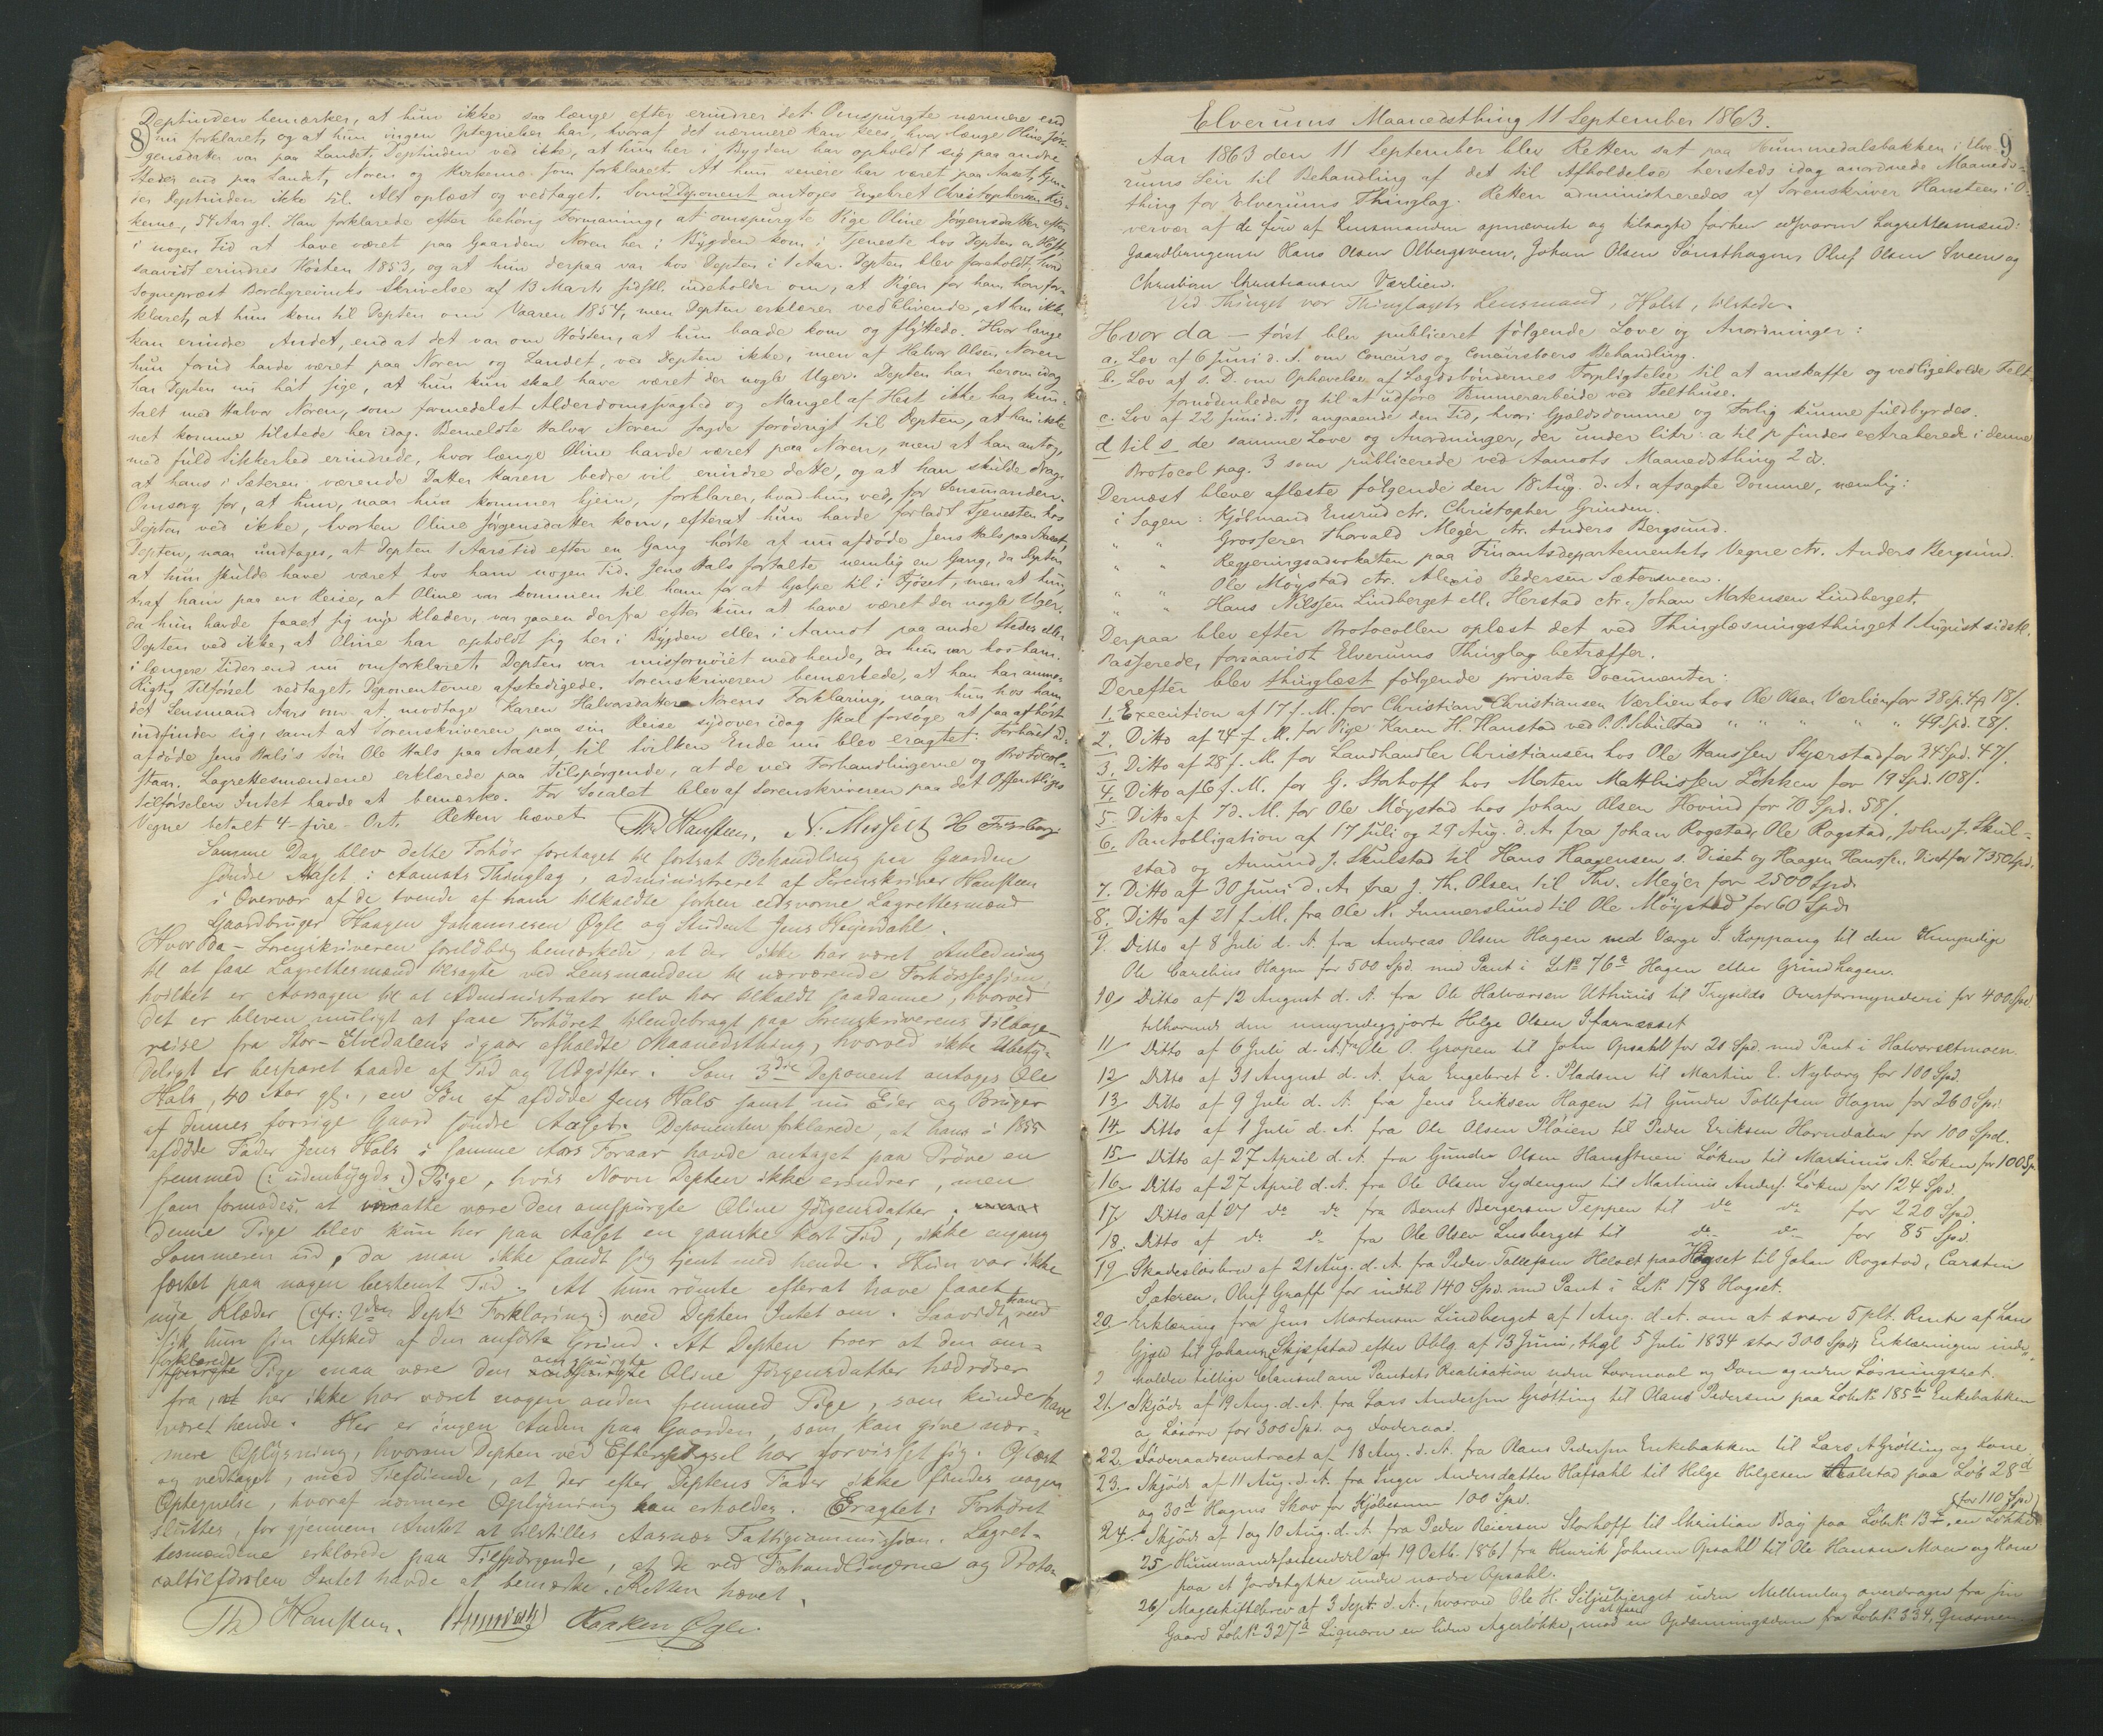 8
Deptinden bemærker, at hun ikke saa længe efter erindrer det Omspurgte nærmere end
nu forklaret, og at hun ingen Optegnelser har, hvoraf det nærmere kan sees, hvor længe Oline Jør-
gensdatter var paa Landet. Deptinden ved ikke, at hun her i Bygden har opholdt sig paa andre
Steder end paa Landet, Noren og Kirkerne som forklaret. At hun senere har været paa Aaset, kjen-
der Deptinden ikke til. Alt oplæst og vedtaget. Som 2 Deponent antoges Engebret Christophersen Kir-
kerne, 54 Aar gl. Han forklarede efter behørig Formaning, at omspurgte Pige Oline Jørgensdatter efter
i nogen Tid at have været paa Gaarden Noren her i Bygden kom i Tjeneste hos Depten om Høsten,
saavidt erindres Høsten 1853, og at hun derpaa var hos Depten i 1 Aar. Depten blev foreholdt, hvad
Sognepræst Borchgrevinks Skrivelse af 13 Marts sidstl. indeholder om, at Pigen for ham har for-
klaret, at hun kom til Depten om Vaaren 1854, men Depten erklærer vedblivende, at han ikke
kan erindre Andet, end at det var om Høsten, at hun baade kom og flyttede. Hvor længe
hun forud havde været paa Noren og Landet, ved Depten ikke, men af Halvor Olsen Noren
har Depten nu hørt sige, at hun kun skal have været der nogle Uger. Depten har herom idag
talt med Halvor Noren, som formedelst Alderdomssvaghed og Mangel af Hest ikke har kun-
net komme tilstede her idag. Bemeldte Halvor Noren sagde forøvrigt til Depten, at han ikke
med fuld Sikkerhed erindrede, hvor længe Oline havde været paa Noren, men at han antog,
at hans i Sæteren værende Datter Karen bedre vil erindre dette, og at han skulde drage
Omsorg for, at hun, naar hun kommer hjem, forklarer, hvad hun ved, for Lensmanden.
Depten ved ikke, hvorhen Oline Jørgensdatter kom, efterat hun havde forladt Tjenesten hos
Depten, naar undtages, at Depten 1 Aars tid efter en Gang hørte af nu afdøde Jens Hals paa Aaset,
at hun skulde have været hos ham nogen Tid. Jens Hals fortalte nemlig en Gang, da Depten
traf ham paa en Reise, at Oline var kommen til ham for at hjælpe til i Fjøset, men at hun,
da hun havde faaet sig nye Klæder, var gaaen derfra efter kun at have været der nogle Uger.
Depten ved ikke, at Oline har opholdt sig her i Bygden eller i Aamot paa andre Steder eller
i længere Tider end nu omforklaret. Depten var misfornøiet med hende, da hun var hos ham.
Rigtig Tilførsel vedtaget. Deponenterne afskedigede. Sorenskriveren bemærkede, at han har anmo-
det Lensmand Aars om at modtage Karen Halvorsdatter Norens Forklaring, naar hun hos ham
indfinder sig, samt at Sorenskriveren paa sin Reise sydover idag skal forsøge at faa afhørt
afdøde Jens Hals's Søn Ole Hals paa Aaset, til hvilken Ende nu blev eragtet: Forhøret ud-
staar. Lagrettesmændene erklærede paa Tilspørgende, at de ved Forhandlingerne og Protocol-
tilførselen Intet havde at bemærke. For Localet blev af Sorenskriveren paa det Offentliges
Vegne betalt 4 – fire – Ort. Retten hævet.
Th. Hansteen, N. Messelt H.
Samme Dag blev dette Forhør foretaget til fortsat Behandling paa Gaarden
søndre Aaset i Aamots Thinglag, administreret af Sorenskriver Hansteen
i Overvær af de tvende af ham tilkaldte forhen edsvorne Lagrettesmænd
Gaardbruger Haagen Johannesen Øgle og Student Jens Heyerdahl.
Hvor da – Sorenskriveren foreløbig bemærkede, at der ikke har været Anledning
til at faae Lagrettesmænd tilsagte ved Lensmanden til nærværende Forhørssession,
hvilket er Aarsagen til at Administrator selv har tilkaldt saadanne, hvorved
det er bleven muligt at faae Forhøret tilendebragt paa Sorenskriverens Tilbage-
reise fra Stor-Elvedalens igaar afholdte Maanedsthing, hvorved ikke Ubety-
deligt er besparet baade af Tid og Udgifter. Som 3die Deponent antoges Ole
Hals, 40 Aar gl., en Søn af afdøde Jens Hals samt nu Eier og Bruger
af dennes forrige Gaard søndre Aaset. Deponenten forklarede, at hans i 1855
afdøde Fader Jens Hals i samme Aars Foraar havde antaget paa Prøve en
fremmed (: udenbygds :) Pige, hvis Navn Depten ikke erindrer, men
som formodes, at maatte være den omspurgte Oline Jørgensdatter.
denne Pige blev kun her paa Aaset en ganske kort Tid, ikke engang
Sommeren ud, da man ikke fandt sig tjent med hende. Hun var ikke
fæstet paa nogen bestemt Tid. At hun rømte efterat have faaet
nye Klæder (cfr: 2den Depts Forklaring:) veed Depten Intet om. Saavidt han veed
fik hun sin Afsked af den anførte Grund. At Depten troer at den om-
forklarede Pige maa være den omspurgte Oline Jørgensdatter hidrører
fra, at her ikke har været nogen anden fremmed Pige, som kunde have
været hende. Her er ingen Anden paa Gaarden, som kan give nær-
mere Oplysning, hvorom Depten ved Efterspørgsel har forvisset sig. Oplæst
og vedtaget, med Tilføiende, at der efter Deptens Fader ikke findes nogen
Optegnelse, hvoraf nærmere Oplysning kan erholdes. Eragtet: Forhøret
sluttes, for gjennem Amtet at tilstilles Aasnæs Fattigcommission. Lagret-
tesmændene erklærede paa Tilspørgende, at de ved Forhandlingerne og Proto-
coltilførslen Intet havde at bemærke. Retten hævet.
Th. Hansteen. Haaken Øgle.
9
Elverums Maanedsthing 11 September 1863.
Aar 1863 den 11 September blev Retten sat paa Hummedalsbakken i Elve-
rums Leir til Behandling af det til Afholdelse hersteds idag anordnede Maaneds-
thing for Elverums Thinglag. Retten administreredes af Sorenskriver Hansteen i O-
vervær af de fire af Lensmanden opnævnte og tilsagte forhen edsvorne Lagrettesmænd:
Gaardbrugerne Hans Olsen Olbergsveen, Johan Olsen Sønsthagen, Oluf Olsen Sveen og
Christian Christiansen Værlien.
Ved Thinget var Thinglagets Lensmand, Holst, tilstede.
Hvor da – først blev publiceret følgende Love og Anordninger:
a. Lov af 6 Juni d. A. om Concurs og Concursboers Behandling.
b. Lov af s. D. om Ophævelse af Lægdsbøndernes Forpligtelse til at anskaffe og vedligeholde Felt-
fornødenheder og til at udføre Tømmerarbeide ved Telthuse.
c. Lov af 22 Juni d. A. angaaende den Tid, hvori Gjældsdomme og Forlig kunne fuldbyrdes.
d til s de samme Love og Anordninger, der under litr: a til p findes extraherede i denne
Protocol pag. 3 som publicerede ved Aamots Maanedsthing 2 d.
Dernæst bleve aflæste følgende den 18 Aug. d. A. afsagte Domme, nemlig:
i Sagen: Kjølmand Ensrud ctr. Christopher Grinden.
" " Grosserer Thorvald Meyer ctr. Anders Bergsund.
" " Regjeringsadvokaten paa Finantsdepartementets Vegne ctr. Anders Bergsund.
" " Ole Møystad ctr. Alexis Pedersen Sætersveen.
" " Hans Nilssen Lindberget ell. Herstad ctr. Johan Mortensen Lindberget.
Derpaa blev efter Protocollen oplæst det ved Thinglæsningsthinget 1 August sidstl.
Passerede, forsaavidt Elverums Thinglag betræffer.
Derefter blev thinglæst følgende private Documenter:
1. Execution af 17 f. M. for Christian Christiansen Værlien hos Ole Olsen Værlien for 38 Sp. 4 18/.
2. Ditto af 24 f. M. for Pige Karen H. Hanstad ved P. P. Skulstad " " " " " 49 Spd. 28/.
3. Ditto af 28 f. M. for Landhandler Christiansen hos Ole Hanssen Skjærstad for 34 Spd. 47/.
4. Ditto af 6 f. M. for G. Storhoff hos Morten Matthissen Løkken for 19 Spd. 108/.
5. Ditto af 7 d. M. for Ole Møystad hos Johan Olsen Hovind for 70 Spd. 58/.
6. Pantobligation af 17 Juli og 29 Aug. d. A. fra Johan Rogstad, Ole Rogstad, John J. Skul-
stad og Amund J. Skulstad til Hans Haagensen s. Diset og Haagen Hanss. Diset for 7350 Spd.
7. Ditto af 30 Juni d. A. fra J. Th. Olsen til Thv. Meyer for 2500 Spd.
8. Ditto af 21 f. M. fra Ole N. Immerslund til Ole Møystad for 60 Spd.
9. Ditto af 8 Juli d. A. fra Andreas Olsen Hagen ved Værge S. Koppang til den Umyndige
Ole Carelius Hagen for 500 Spd. med Pant i L.N. 76a Hagen eller Grindhagen.
10/ Ditto af 12 August d. A. fra Ole Halvorsen Uthuus til Trysilds Overformynderi for 400 Spd
tilhørende den umyndiggjorte Helge Olsen
11 Ditto af 6 Juli d. A. fra Ole O. Gropen til John Opsahl for 20 Spd. med Pant i Halvorsetmoen.
12 Ditto af 31 August d. A. fra Engebret E. Pladsen til Martin E. Nyborg for 100 Spd.
13. Ditto af 9 Juli d. A. fra Jens Eriksen Hagen til Gunder Tollefsen Hagen for 260 Spd.
14. Ditto af 1 Juli d. A. fra Ole Olsen Pløien til Peder Eriksen Horndalen for 100 Spd.
15. Ditto af 27 April d. A. fra Gunder Olsen Hansstuen Løken til Martinus A. Løken for 100 Sp.
16. Ditto af 27 April d. A. fra Ole Olsen Sydengen til Martinus Anders. Løken for 124 Spd.
17. Ditto af 27 do do fra Bernt Bergersen Teppen til do do for 220 Spd.
18. Ditto af do do fra Ole Olsen Lusberget til do do for 85 Spd.
19 Skadesløsbrev af 21 Aug. d. A. fra Peder Tollefsen Helset paa Hagset til Johan Rogstad, Carsten
Sæteren, Oluf Graff for indtil 140 Spd. med Pant i L.N. 178 Hagset.
20. Erklæring fra Jens Mortensen Lindberget af 1 Aug. d. A. om at svare 5 plt. Rente af han
Gjæld til Johannes Skjefstad efter Oblg. af 13 Juni, thgl 5 Juli 1834 stor 300 Spd. Erklæringen inde-
holder tillige Clausul om Pantets Realisation uden Lovmaal og Dom og uden Løsningsret.
21. Skjøde af 19 Aug. d. A. fra Lars Andersen Grøtting til Olaus Pedersen paa LøbN. 185b Enkebakken
og Løsøre for 300 Spd. og Foderaad.
22. Føderaadscontract af 18 Aug. d. A. fra Olaus Pedersen Enkebakken til Lars A Grøtting og Kone.
23. Skjøde af 11 Aug. d. A. fra Inger Andersdatter Hafsahl til Helge Helgesen Aalstad paa Løb 28d
og 30d Hagens Skov for Kjøbesum 100 Spd.
24. Skjøde af 1 og 10 Aug. d. A. fra Peder Reiersen Storhoff til Christian Bay paa LøbN. 13, en Løkke (for 110 Spd.)
25 Huusmandsfæsteseddel af 19 Octb. 1861 fra Henrik Johnsen Opsahl til Ole Hansen Moen og Kone
paa et Jordstykke under nordre Opsahl.
26/ Mageskiftebrev af 3 Sept. d. A., hvorved Ole H. Siljuberget uden Mellemlag overdrager fra sin
Gaard LøbN. 327a en liden Agerløkke, mod en Opdæmningsdam fra LøbN. 334,